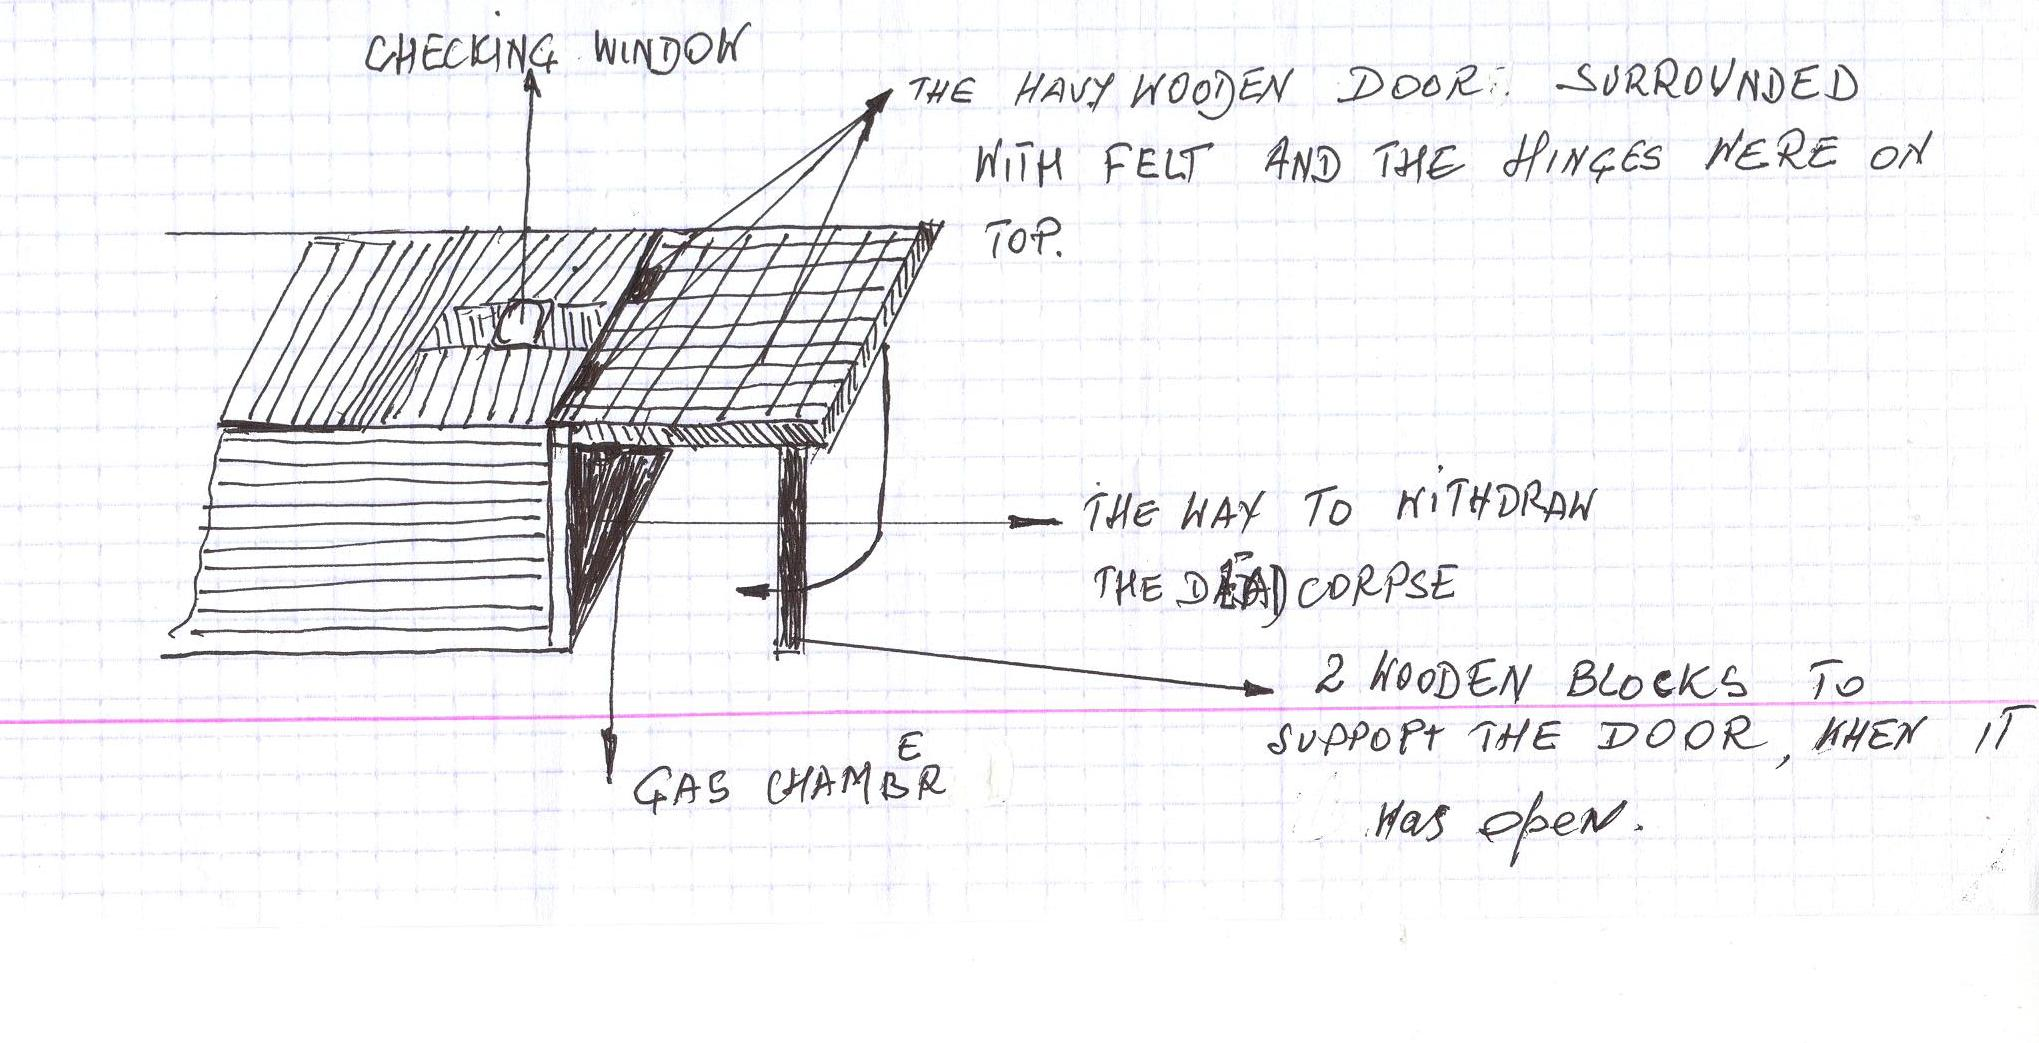 CHECKING WINDOW
THE HAVY WOODEN DOOR: SURROUNDED
WITH FELT AND THE HINGES WERE ON
TOP.
THE WAY TO WITHDRAW
THE DEAD CORPSE
2 WOODEN BLOCKS TO
SUPPOPT THE DOOR, WHEN IT
Was open.
GAS CHAMBER